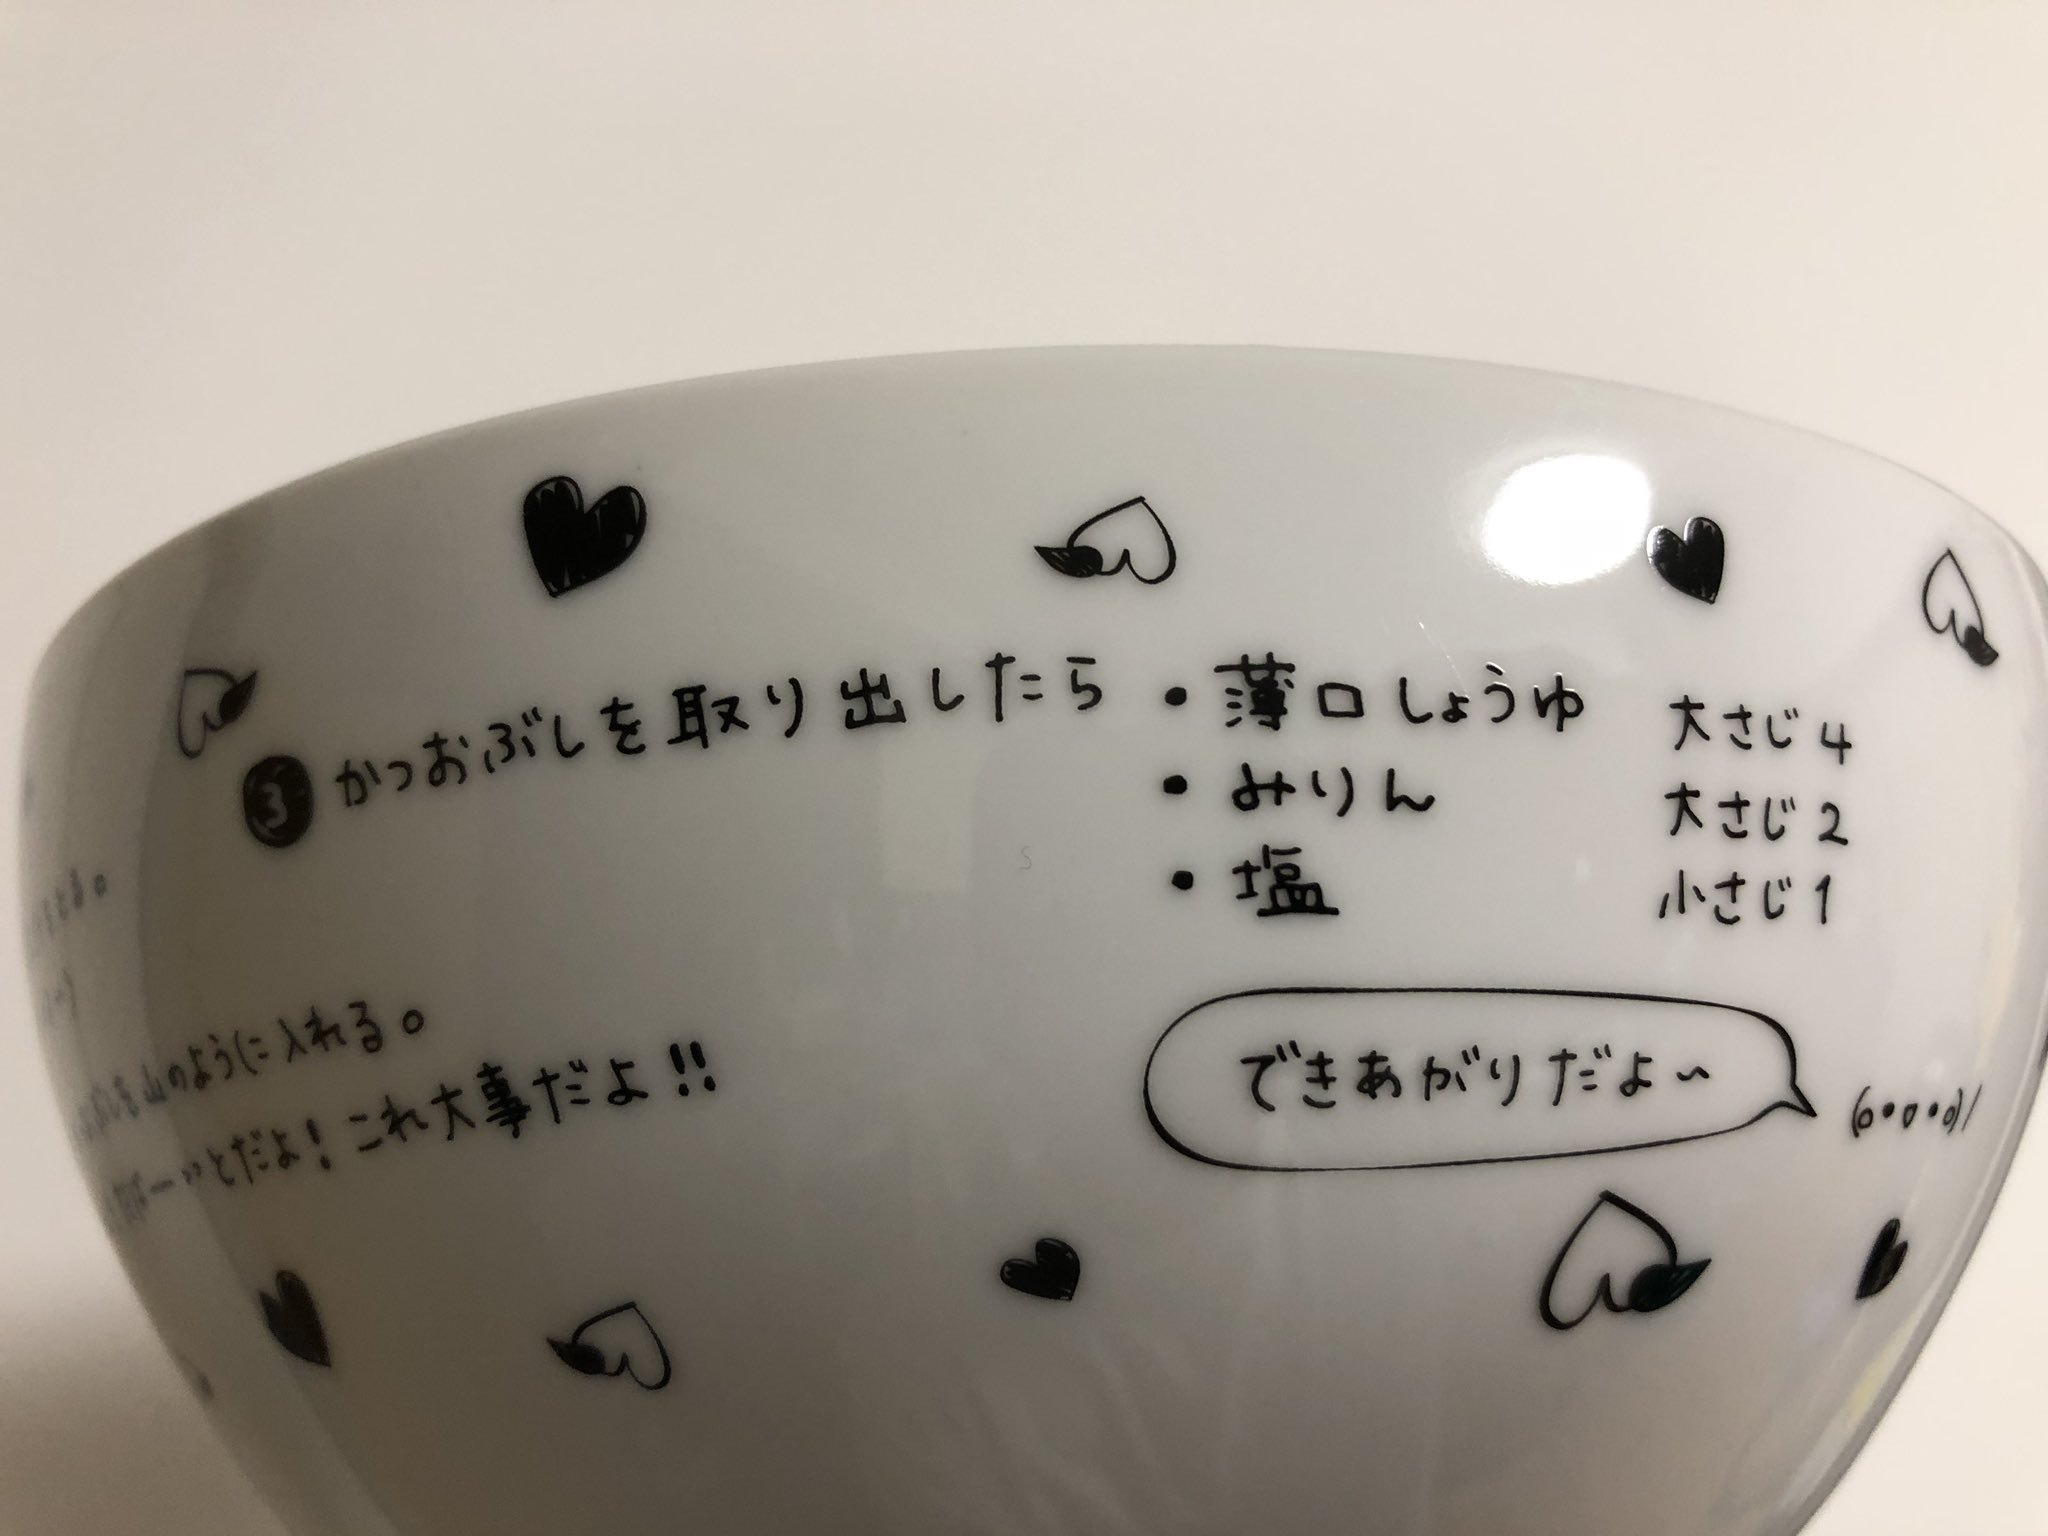 ❸ かつおぶしを取り出したら
・薄口しょうゆ 大さじ4
・みりん 大さじ2
・塩 小さじ1
とる。
ぶしを山のように入れる。
ばーいとだよ！これ大事だよ!!
できあがりだよ〜
(o・▽・o)/